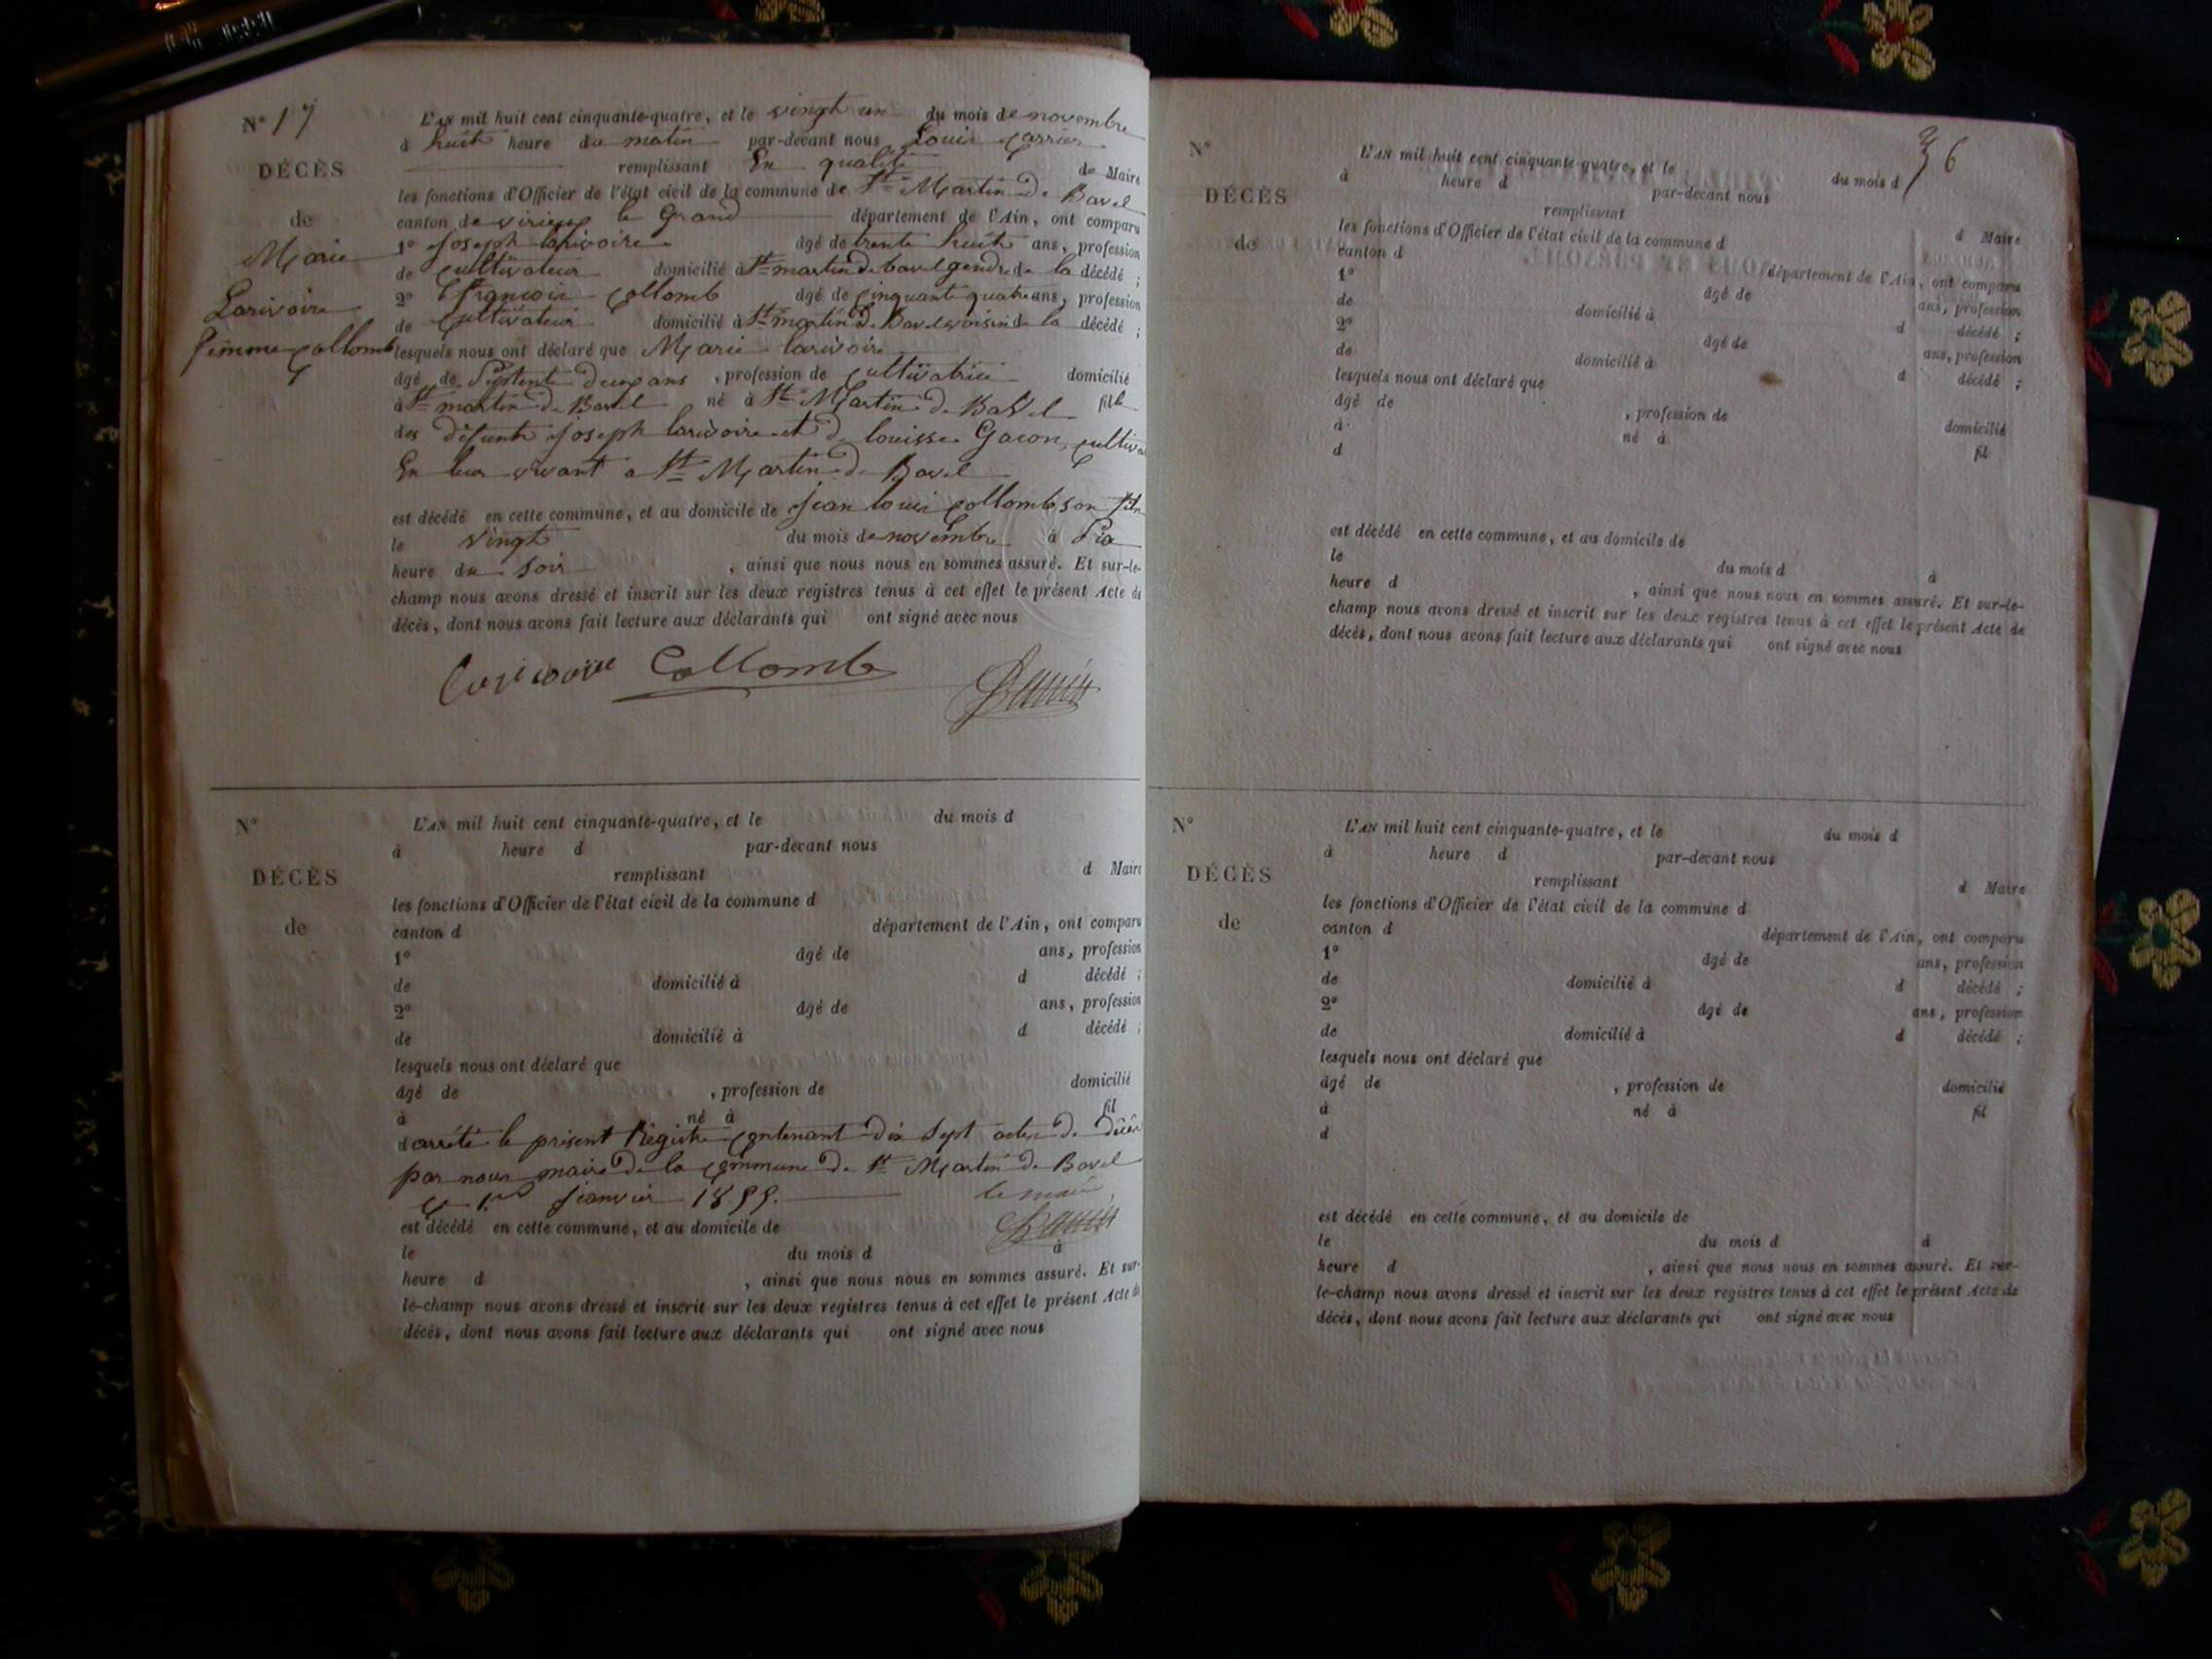 N° 17
DÉCÈS
de
Marie
Larivoire
femme Collomb
L'AN mil huit cent cinquante-quatre, et le vingt un du mois de novembre
à huit heure du matin par-devant nous Louis
remplissant En qualité de Maire
les fonctions d'Officier de l'état civil de la commune de St Martin de Bavel
canton de virieux le Grand département de l'Ain, ont comparu
1° Joseph larivoire âgé de trente huit ans, profession
de cultivateur domicilié à St martin de bavel gendre de la décédé ;
2° François Collomb âgé de cinquante quatre ans, profession
de cultivateur domicilié à St martin de Bavel voisin de la décédé ;
lesquels nous ont déclaré que Marie larivoire
âgé de Septente deux ans , profession de cultivatrice domicilié
à St martin de Bavel né à St Martin de Bavel fille
des défunts Joseph larivoire et de louisse Gacon, cultiva
En leur vivant à St Martin de Bavel
est décédé en cette commune, et au domicile de jean louis collomb son
le vingt du mois de novembre à Six
heure du soir , ainsi que nous nous en sommes assuré. Et sur-le-
champ nous avons dressé et inscrit sur les deux registres tenus à cet effet le présent Acte de
décès, dont nous avons fait lecture aux déclarants qui ont signé avec nous
Larivoire Collomb
N°
DÉCÈS
de
L'AN mil huit cent cinquante-quatre, et le du mois d
à heure d par-devant nous
remplissant d Maire
les fonctions d'Officier de l'état civil de la commune d
canton d département de l'Ain, ont comparu
1° âgé de ans, profession
de domicilié à d décédé ;
2° âgé de ans, profession
de domicilié à d décédé ;
lesquels nous ont déclaré que
âgé de , profession de domicilié
à né à fil
d arrêté le présent Registre contenant dix Sept actes de décès
par nous maire de la commune de St Martin de Bavel
le 1er Janvier 1855. le maire,
est décédé en cette commune, et au domicile de
le du mois d à
heure d , ainsi que nous nous en sommes assuré. Et sur-
le-champ nous avons dressé et inscrit sur les deux registres tenus à cet effet le présent Acte de
décès, dont nous avons fait lecture aux déclarants qui ont signé avec nous
36
N°
DÉCÈS
de
L'AN mil huit cent cinquante-quatre, et le du mois d
à heure d par-devant nous
remplissant d Maire
les fonctions d'Officier de l'état civil de la commune d
canton d département de l'Ain, ont comparu
1° âgé de ans, profession
de domicilié à d décédé ;
2° âgé de ans, profession
de domicilié à d décédé ;
lesquels nous ont déclaré que
âgé de , profession de domicilié
à né à fil
d
est décédé en cette commune, et au domicile de
le du mois d à
heure d , ainsi que nous nous en sommes assuré. Et sur-le-
champ nous avons dressé et inscrit sur les deux registres tenus à cet effet le présent Acte de
décès, dont nous avons fait lecture aux déclarants qui ont signé avec nous
N°
DÉCÈS
de
L'AN mil huit cent cinquante-quatre, et le du mois d
à heure d par-devant nous
remplissant d Maire
les fonctions d'Officier de l'état civil de la commune d
canton d département de l'Ain, ont comparu
1° âgé de ans, profession
de domicilié à d décédé ;
2° âgé de ans, profession
de domicilié à d décédé ;
lesquels nous ont déclaré que
âgé de , profession de domicilié
à né à fil
d
est décédé en cette commune, et au domicile de
le du mois d à
heure d , ainsi que nous nous en sommes assuré. Et sur-
le-champ nous avons dressé et inscrit sur les deux registres tenus à cet effet le présent Acte de
décès, dont nous avons fait lecture aux déclarants qui ont signé avec nous